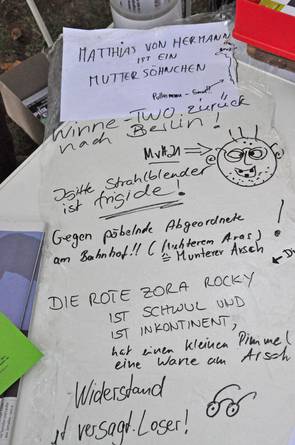 MATTHIAS VON HERMANN
IST EIN
MUTTERSÖHNCHEN
Winne-TWO zurück
nach Berlin!
MvHJA
Jgitte Strahlblender
ist frigide!
Gegen pöbelnde Abgeordnete
am Bahnhof!! (
≙ Munterer Arsch
DIE ROTE ZORA ROCKY
IST SCHWUL UND
IST INKONTINENT,
hat einen kleinen Pimmel
eine Warze am Arsch
Widerstand
versagt. Loser!